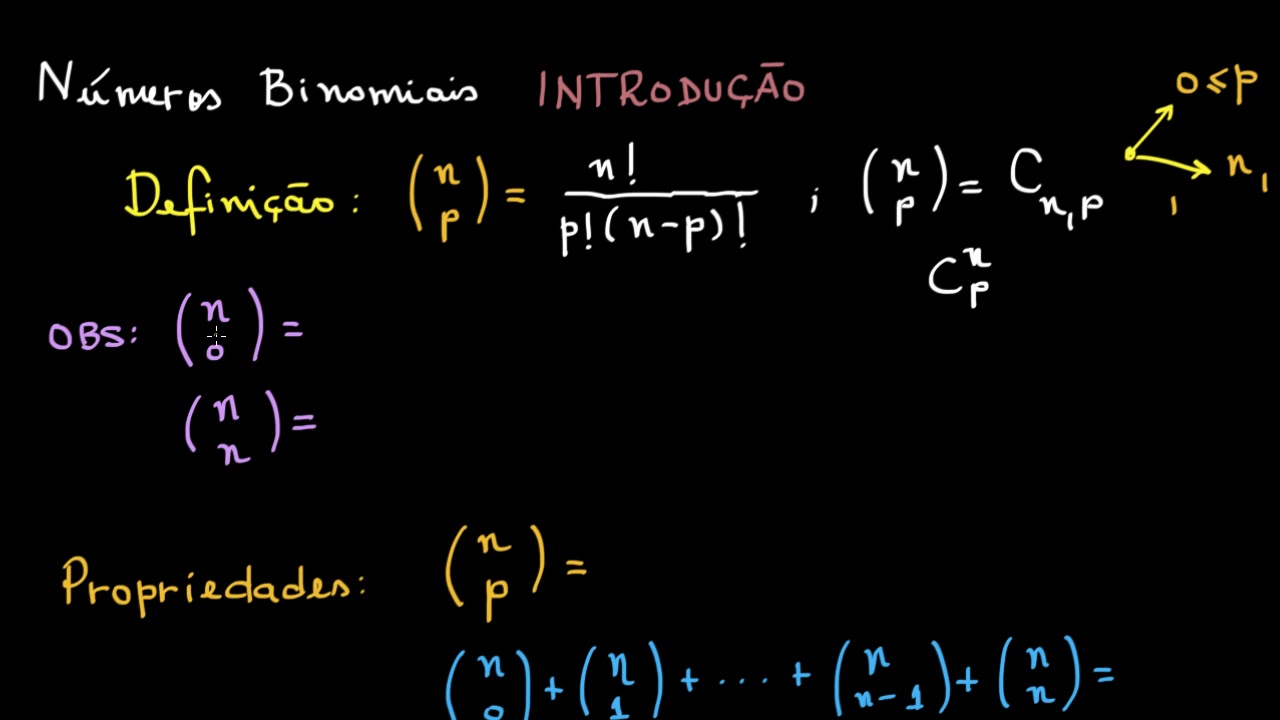 Números Binomiais INTRODUÇÃO
0 ≤ p
n,
Definição: (n p) = n! / p!(n-p)! ; (n p) = C n,p
C n p
OBS: (n 0) =
(n n) =
Propriedades: (n p) =
(n 0) + (n 1) + ... + (n n-1) + (n n) =